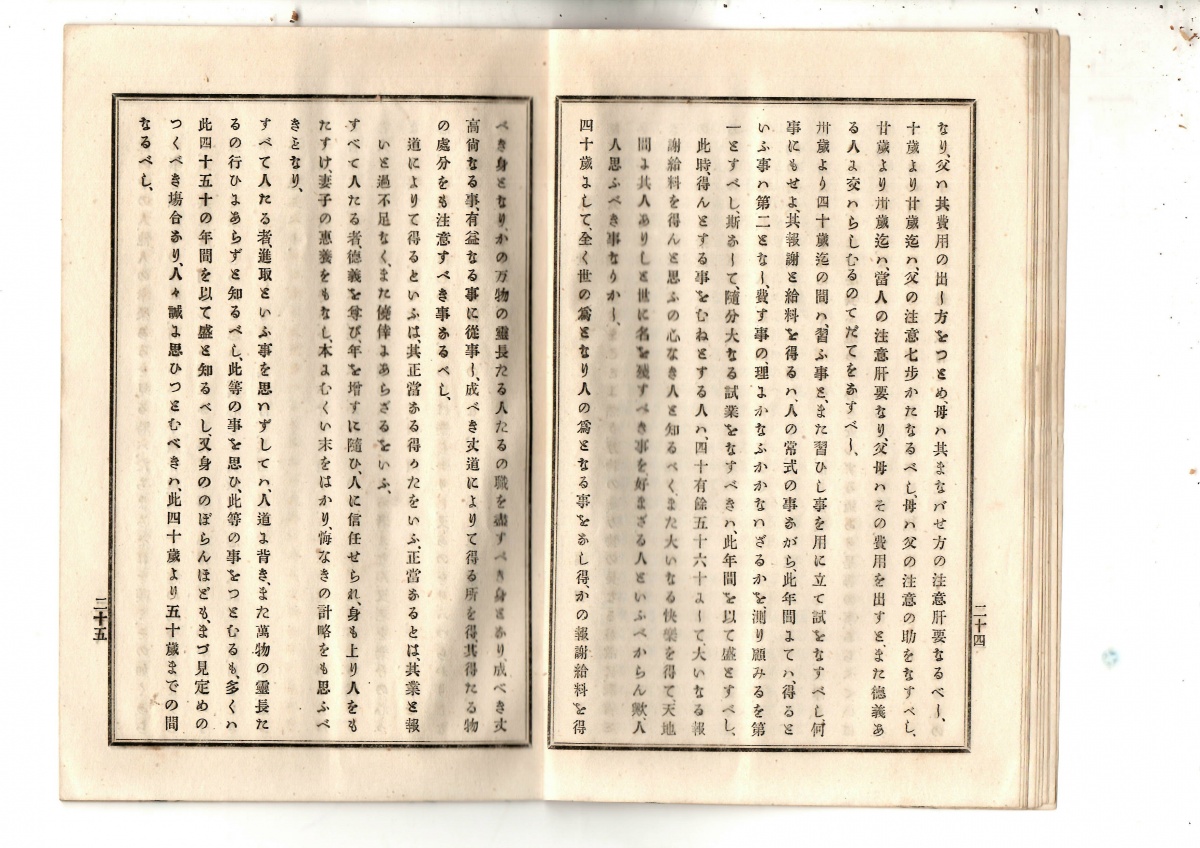 なり、父ハ其費用の出し方をつとめ、母ハ其まなバせ方の注意肝要なるべし、
十歲より廿歲迄ハ、父の注意七步かたなるべし、母ハ父の注意の助をなすべし、
廿歲より卅歲迄ハ、當人の注意肝要なり、父母ハその費用を出すと、また德義あ
る人よ交ハらしむるのてだてをあすべし、
卅歲より四十歲迄の間ハ、習ふ事と、また習ひし事を用に立て試をなすべし、何
事にもせよ、其報謝と給料を得るハ、人の常式の事あがら、此年間よてハ、得ると
いふ事ハ第二となし、費す事の、理よかなふかかなハざるかを、測り顧みるを第
一とすべし、斯あして、隨分大なる試業をなすべきハ、此年間を以て盛とすべし、
此時、得んとする事をむねとする人ハ、四十有餘五十六十よして、大いなる報
謝給料を得んと思ふの心なき人と知るべく、また大いなる快樂を得て、天地
間よ其人ありしと世に名を殘すべき事を、好まざる人といふべからん歟、人
人思ふべき事なりかし、
四十歲よして、全く世の爲となり人の爲となる事をあし得、かの報謝給料を得
二十四
べき身となり、かの万物の靈長たる人たるの職を盡すべき身とあり、成べき丈
高尙なる事、有益なる事に從事し、成べき丈道によりて得る所を得、其得たる物
の處分をも注意すべき事あるべし、
道によりて得るといふは、其正當ある得かたをいふ、正當あるとは其業と報
いと過不足なく、また僥倖よあらざるをいふ、
すべて人たる者、德義を尊び、年を增すに隨ひ、人に信任せられ、身も上り人をも
たすけ、妻子の惠養をもなし、本よむくい末をはかり、悔なきの計略をも思ふべ
きとなり、
すべて人たる者、進取といふ事を思ハずしてハ、人道よ背き、また萬物の靈長た
るの行ひよあらずと知るべし、此等の事を思ひ、此等の事をつとむるも、多くハ
此四十五十の年間を以て盛と知るべし、又身ののぼらんほども、まづ見定めの
つくべき塲合あり、人々誠よ思ひつとむべきハ、此四十歲より五十歲までの間
なるべし、
二十五